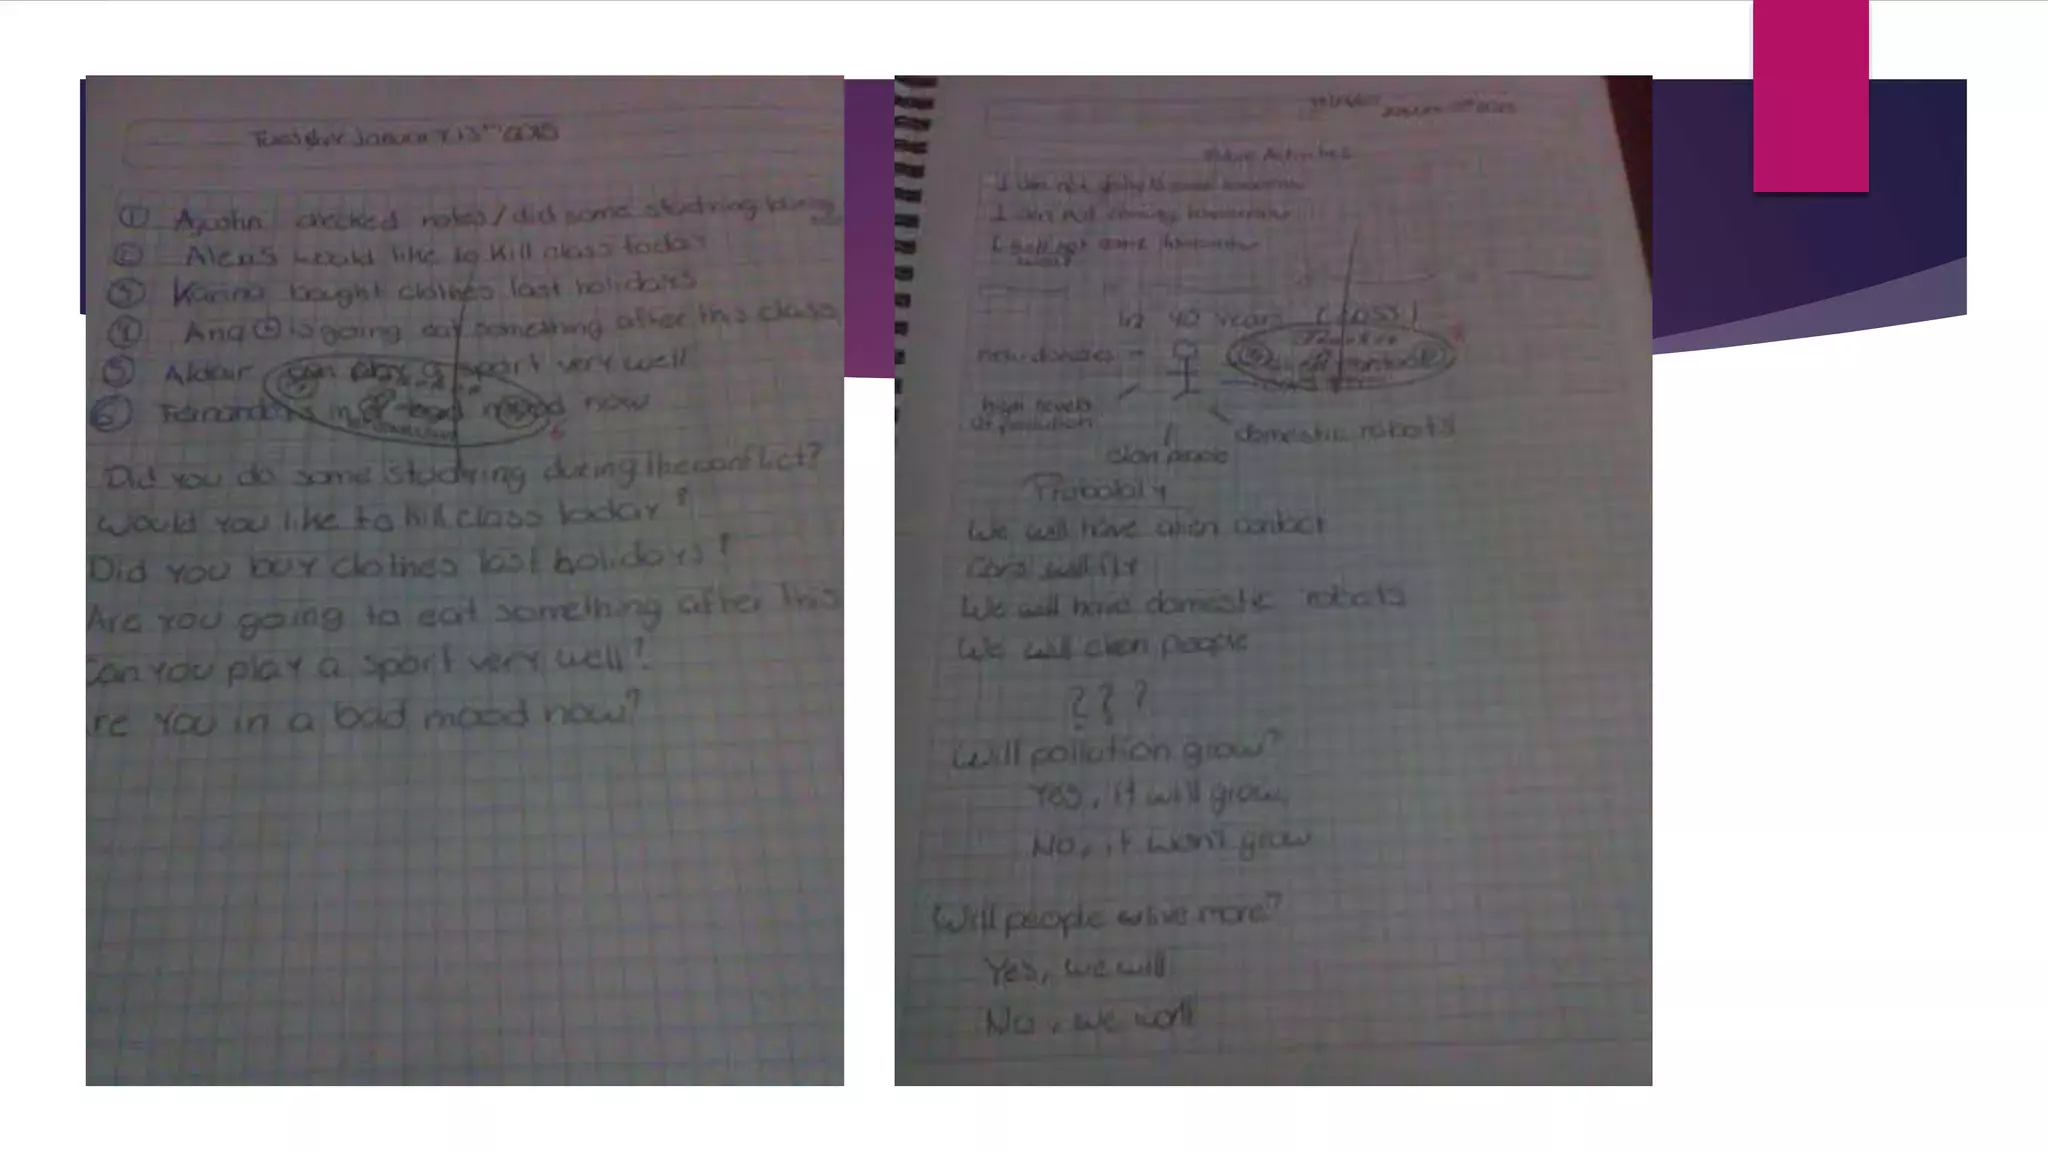 Tuesday January 13th 2015
① checked notes / did some studying during
② Alexis would like to kill class today
③ Karina bought clothes last holidays
④ Ana is going eat something after this class
⑤ Aldair can play a sport very well
⑥ Fernanda is in a bad mood now
Did you do some studying during the conflict?
Would you like to kill class today?
Did you buy clothes last holidays?
Are you going to eat something after this
Can you play a sport very well?
re you in a bad mood now?
Future Activities
I am not going to come tomorrow
I am not coming tomorrow
I shall not come tomorrow
won't
In 40 years (2055)
new diseases
high levels of pollution
clon people
domestic robots
Probably
We will have alien contact
Cars will fly
We will have domestic robots
We will clon people
???
Will pollution grow?
Yes, it will grow
No, it won't grow
Will people live more?
Yes, we will
No, we won't